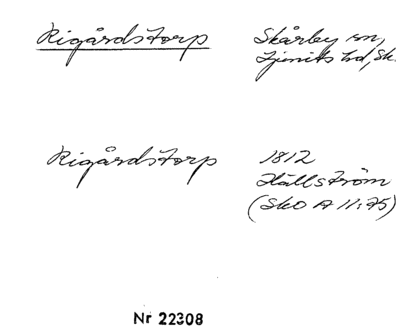 Rigårdstorp Skårby sn,
Ljunits hd, Sk.
Rigårdstorp 1812
Hällström
(SkO A 11:75)
Nr 22308